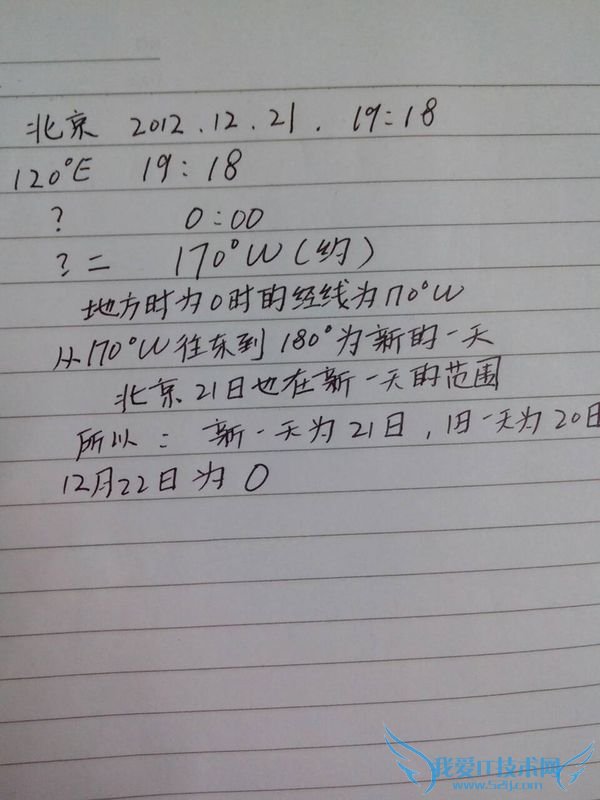 北京 2012.12.21. 19:18
120°E 19:18
? 0:00
?= 170°W(约)
地方时为0时的经线为170°W
从170°W往东到180°为新的一天
北京21日也在新一天的范围
所以: 新一天为21日,旧一天为20日
12月22日为0
我爱IT技术网
www.52ij.com